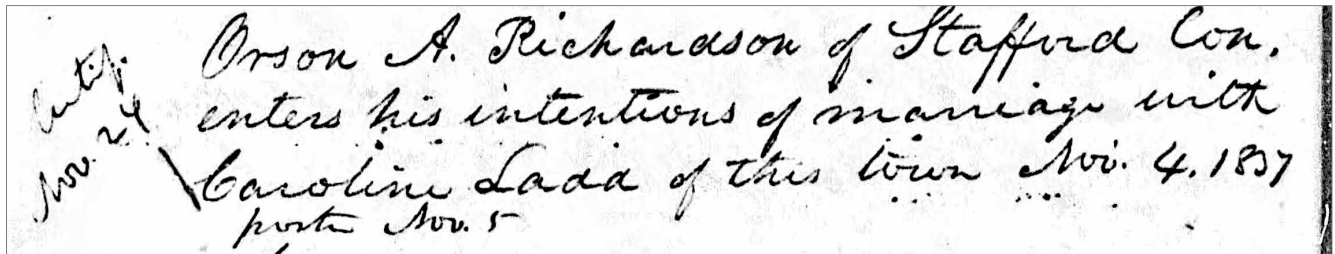 Certif.
Nov. 24
Orson A. Richardson of Stafford Con.
enters his intentions of marriage with
Caroline Ladd of this town Nov. 4. 1837
posted Nov. 5